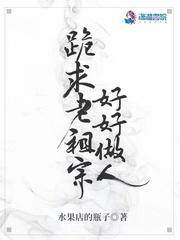 跪求老祖宗
好好做人
水果店的瓶子◎著